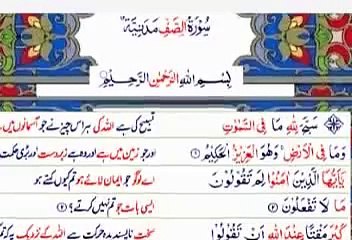 سُوْرَةُ الصَّفِّ مَدَنِيَّةٌ
بِسْمِ اللهِ الرَّحْمٰنِ الرَّحِيْمِ
سَبَّحَ لِلّٰهِ مَا فِي السَّمٰوٰتِ تسبیح کی ہے اللہ کی ہر اس چیز نے جو آسمانوں میں ہے
وَمَا فِي الْاَرْضِ ۚ وَهُوَ الْعَزِيْزُ الْحَكِيْمُ ① اور جو زمین میں ہے اور وہ ہے زبردست اور بڑی حکمت
يٰۤاَيُّهَا الَّذِيْنَ اٰمَنُوْا لِمَ تَقُوْلُوْنَ اے لوگو جو ایمان لائے ہو تم کیوں کہتے ہو
مَا لَا تَفْعَلُوْنَ ② ایسی بات جو تم نہیں کرتے؟ ②
كَبُرَ مَقْتًا عِنْدَ اللهِ اَنْ تَقُوْلُوْا سخت ناپسندیدہ حرکت ہے اللہ کے نزدیک یہ کہ تم